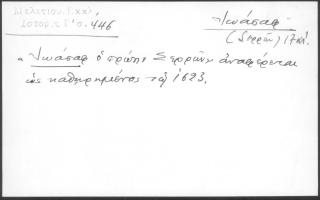 Μελετίου, Ἐκκλ.
Ἱστορ. τ. Γ' σ. 446
Ἰωάσαφ
(Σερρῶν) 17 αἰ.
« Ἰωάσαφ ὁ πρώην Σερρῶν » ἀναφέρεται
ὡς καθηρημένος τῷ 1623.